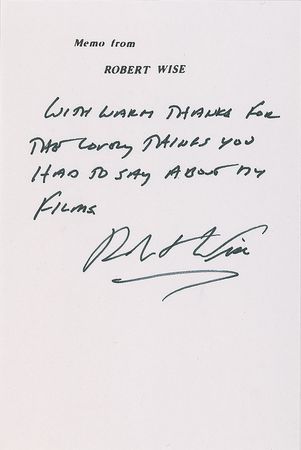 Memo from
ROBERT WISE
WITH WARM THANKS FOR
THE LOVELY THINGS YOU
HAD TO SAY ABOUT MY
FILMS
Robert Wise